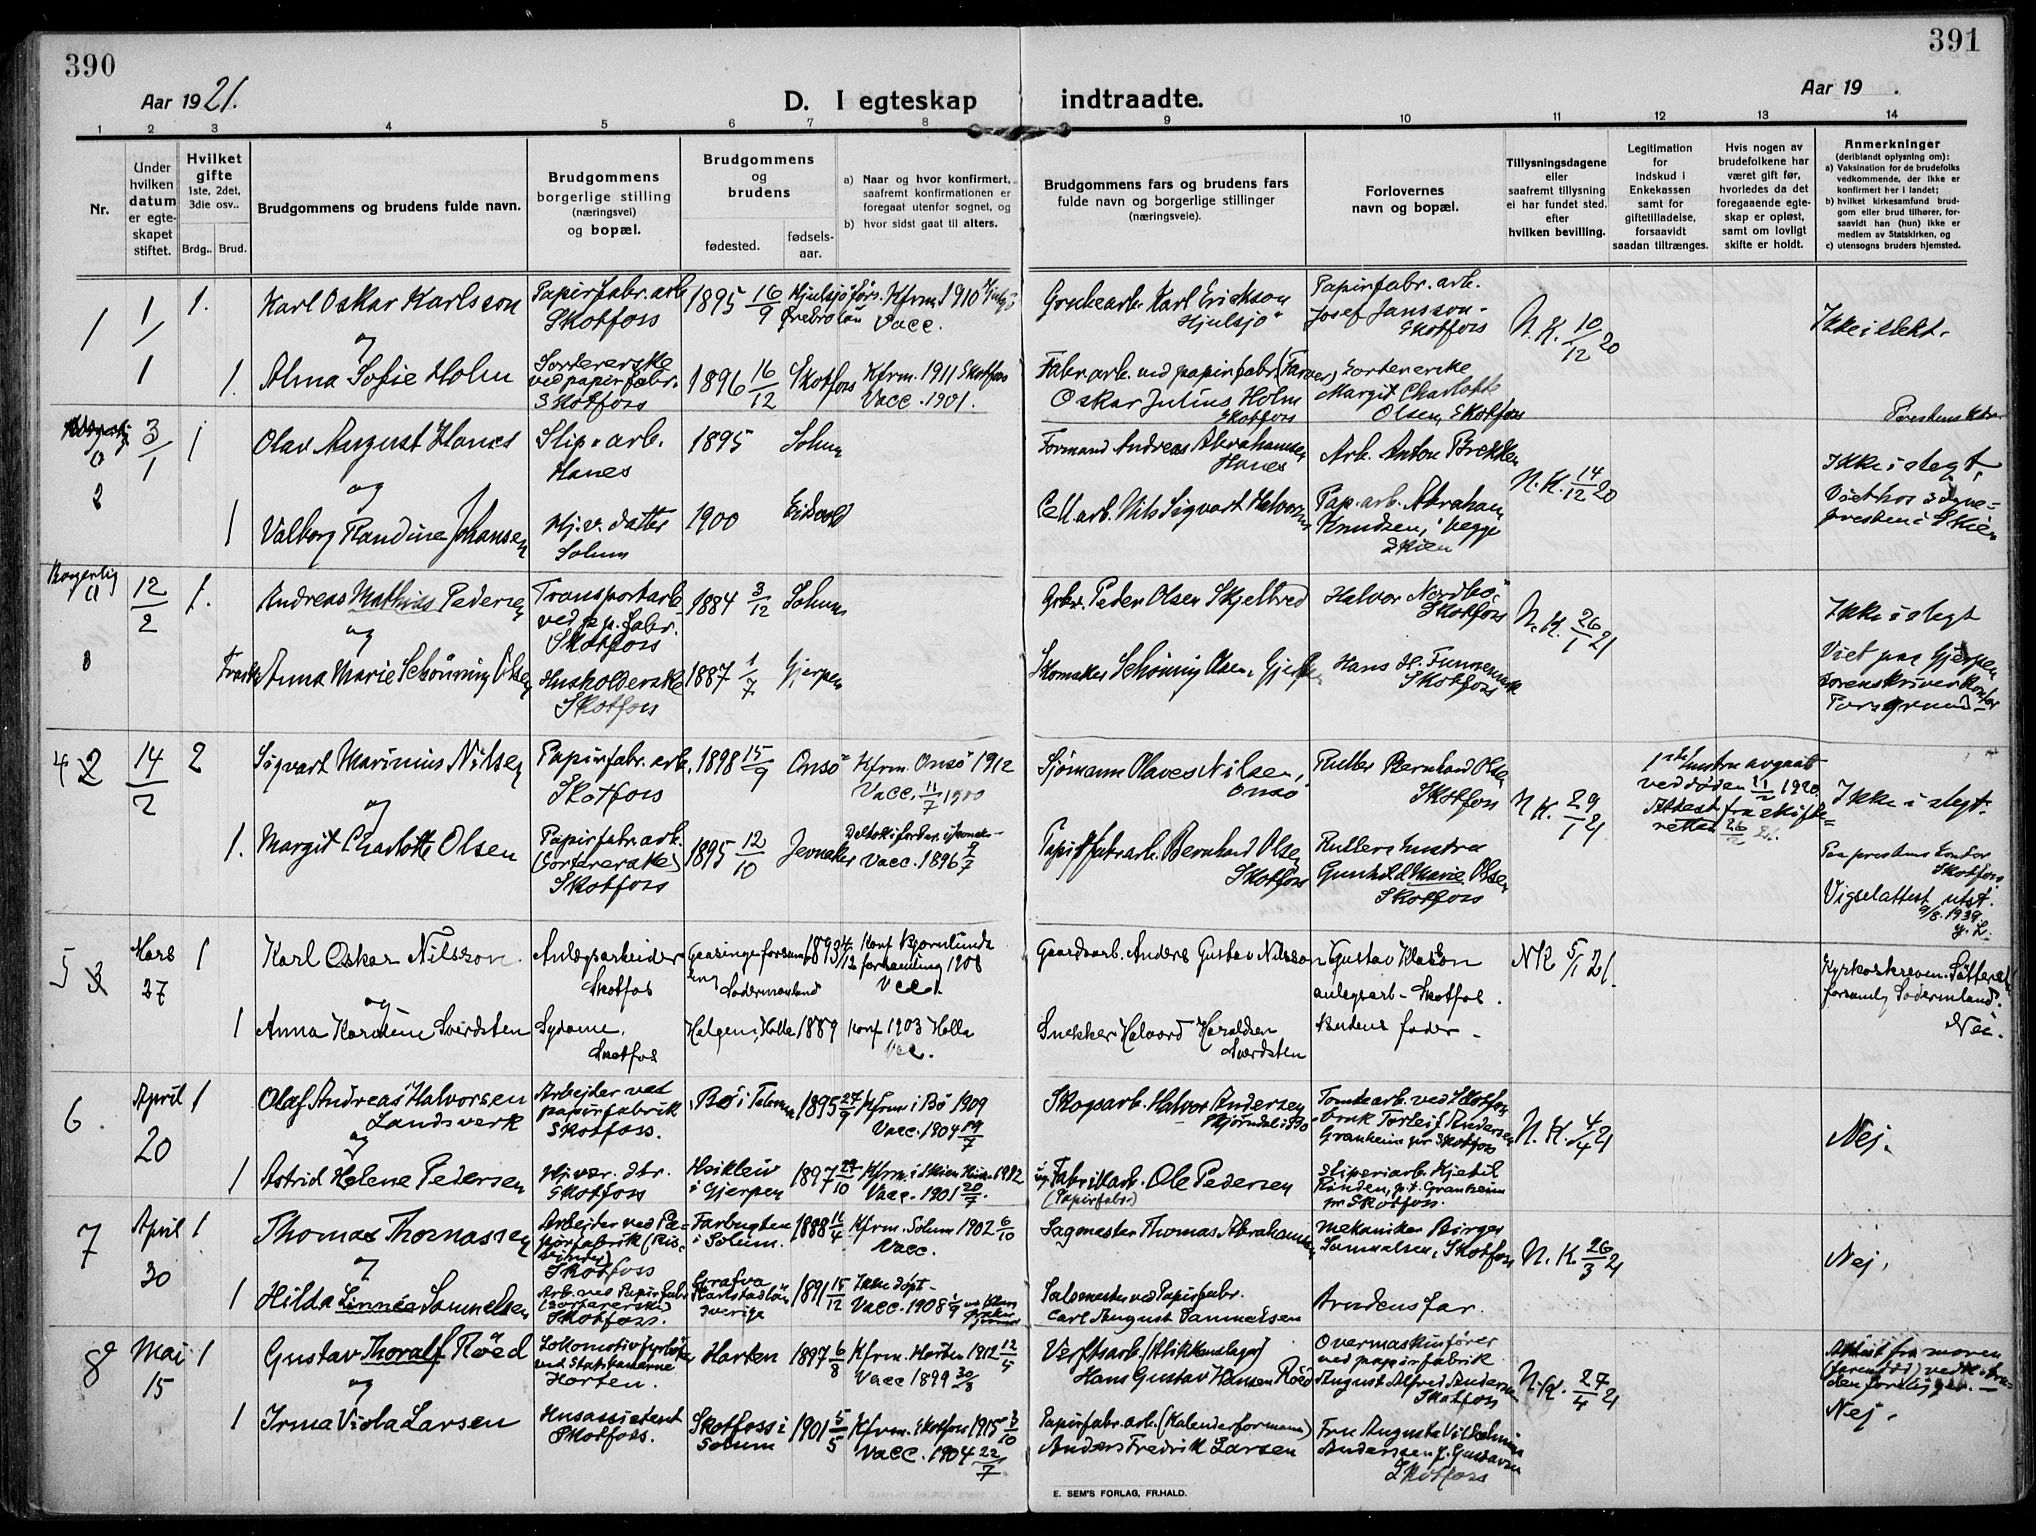 390
391
Aar 1921.
D. I egteskap indtraadte.
Aar 19 .
1 2 3 4 5 6 7 8 9 10 11 12 13 14
Nr.
Under
hvilken
datum
er egte-
skapet
stiftet.
Hvilket
gifte
1ste, 2det,
3die osv..
Brdg.. Brud.
Brudgommens og brudens fulde navn.
Brudgommens
borgerlige stilling
(næringsvei)
og bopæl.
Brudgommens
og
brudens
fødested.
fødsels-
aar.
a) Naar og hvor konfirmert,
saafremt konfirmationen er
foregaat utenfor sognet, og
b) hvor sidst gaat til alters.
Brudgommens fars og brudens fars
fulde navn og borgerlige stillinger
(næringsveie).
Forlovernes
navn og bopæl.
Tillysningsdagene
eller
saafremt tillysning
ei har fundet sted,
efter
hvilken bevilling.
Legitimation
for
indskud i
Enkekassen
samt for
giftetilladelse,
forsaavidt
saadan tiltrænges.
Hvis nogen av
brudefolkene har
været gift før,
hvorledes da det
foregaaende egte-
skap er opløst,
samt om lovligt
skifte er holdt.
Anmerkninger
(deriblandt oplysning om):
a) Vaksination for de brudefolks
vedkommende, der ikke er
konfirmert her i landet;
b) hvilket kirkesamfund brud-
gom eller brud tilhører, for-
saavidt han (hun) ikke er
medlem av Statskirken, og
c) utensogns bruders hjemsted.
1 1/1 1. Karl Oskar Karlsson
Papirfabr. arb.
Skotfoss
1895 16/9
Hjulsjö förs.
Örebro län
Kfrm. 1910
Vacc.
Karl Erickson
Hjulsjö
Papirfabr. arb.
Josef Jansson
Skotfoss
N. K. 10/12 20
Ikke i slekt.
og
1. Alma Sofie Holm
Sortererske
ved papirfabr.
Skotfoss
1896 16/12 Skotfoss
Kfrm. 1911 Skotfoss
Vacc. 1901.
Fabr. arb. ved papirfabr.
Oskar Julius Holm
Skotfoss
Sortererske
Margit Charlotte
Olsen, Skotfoss
2 3/1 1 Olav August Hanes
Slip. arb.
Hanes
1895 Solum
Formand Andreas Abrahamsen
Hanes
Arb. Anton Brekken
N. K. 14/12 20
Ikke i slegt,
og
1 Valborg Randine Johansen
Hj. v. datter
Solum
1900
Cell. arb. Nils Sigvart Halvorsen
Pap. arb. Abraham
Knudsen, begge
Skien
Viet hos sogne-
presten i Skien
Borgerlig
12/2 1. Andreas Mathias Pedersen
Transportarb.
ved pap. fabr.
Skotfoss
1884 3/12 Solum
Peder Olsen Skjelbred
Halvor Nordbö,
Skotfoss
N. K. 26/1 21
Ikke i slegt
og
Anna Marie Schönning Olsen
Husholderske
Skotfoss
1887 1/7 Gjerpen
Skomaker Schönning Olsen, Gjerpen
Hans H.
Skotfoss
Viet paa Gjerpen
Sorenskriverkontor
4 2 14/2 2 Sigvart Marinius Nilsen
Papirfabr. arb.
Skotfoss
1898 15/9 Onsö
Kfrm. Onsö 1912
Vacc. 11/7 1900
Sjömann Olaves Nilsen,
Onsö
Ruller Bernhard Olsen
Skotfoss
N. K. 29/1 21
1ste hustru avgaat
ved døden 11/2 1920.
Attest fra skifte-
retten 26/2 21.
Ikke i slegt.
og
1. Margit Charlotte Olsen
Papirfabr. arb.
(sortererske)
Skotfoss
1895 12/10 Jevnaker
Vacc. 1896 9/7
Papirfabrarb. Bernhard Olsen
Skotfoss
Rullers hustru
Gunhild Marie Olsen
Skotfoss
Paa prestens kontor
Skotfoss
Vigselattest utst.
9/8. 1939
5 3 Mars 27 1 Karl Oskar Nilsson
Anlegsarbeider
Skotfos
Gaasinge forsam-
ling
Södermanland
1893 4/12
Konf Björnlunda
forsamling 1908
Vacc.
Gaardsarb. Anders Gustav Nilsson
Gustav Klasson
anlegsarb - Skotfos.
NK 5/1 21.
forsaml. Södermanland.
Nei.
og
1 Anna Karoline Sverdsten
Sydame.
Skotfos
Helgen, Holla 1889
Konf 1903 Holla
Vacc.
Snekker Halvord Haraldsen
Sverdsten
Brudens fader -
6. April 20 1 Olaf Andreas Halvorsen
Landsverk
Arbejder ved
papirfabrik
Skotfoss.
Bö i Telemar. 1895 27/9
Kfrm. i Bö 1909
Vacc. 1904 19/7
Skogsarb. Halvor Andersen
Bjørndal i Bø
Tomtearb. ved Skotfos
bruk Torleif Andersen
Granheim pr. Skotfoss
N. K. 4/4 21
Nej.
og
1 Astrid Helene Pedersen
Hj. vær. dtr.
Skotfoss
Heikleiv
i Gjerpen
1897 29/10
Kfrm. i Skien 1912
Vacc. 1901 20/7.
Fabrikarb. Ole Pedersen
(Papirfabr.)
Sliperiarb. Kjetil
Rinden, p.t. Granheim
pr. Skotfoss.
7 April 30 1 Thomas Thomassen
Arbejder ved Pa-
pirfabrik
Skotfoss
Farbugten
i Solum.
1888 11/4
Kfrm. Solum 1902 6/10
Vacc.
Sagmester Thomas Abrahamsen
Mekaniker Birger
Samuelsen, Skotfoss
N. K. 26/3 21
Nej.
og
1 Hilda Linnéa Samuelsen
Arb. ved Papirfabr.
(sortererske)
Skotfoss.
Grafva
Karlstad län
Sverige
1891 15/12
Ikke døpt.
Vacc. 1908 1/9
Salsmester ved Papirfabr.
Carl August Samuelsen
Brudens far.
8 Mai 15 1 Gustav Thoralf Röed
Lokomotivfyrböter
ved Statsbanerne
Horten.
Horten 1897 6/8
Kfrm. Horten 1912 12/4
Vacc 1899 30/8
Verftsarb. (Klikkenslager)
Hans Gustav Hansen Röed
Overmaskinfører
ved papirfabrik
August Alfred Andersen
Skotfoss
N. K. 27/4 21
Attest fra moren
Nej.
og
1 Irma Viola Larsen
Husassistent
Skotfoss.
Skotfoss i
Solum
1901 5/5
Kfrm. Skotfoss 1915 3/10
Vacc. 1904 22/7
Papirfabr. arb. (Kalenderformann)
Anders Fredrik Larsen
Fru Augusta Vilhelmine
Andersen f. Gustavsen
Skotfoss
E. SEM'S FORLAG, FR.HALD.